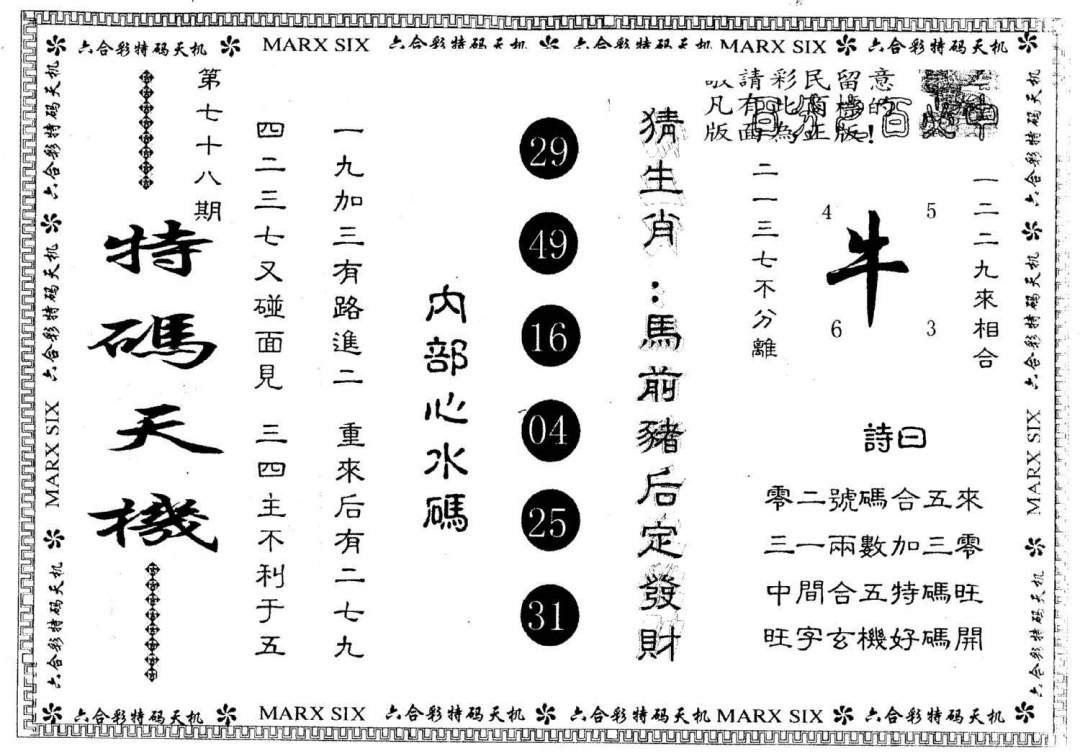 六合彩特码天机 MARX SIX 六合彩特码天机 六合彩特码天机 MARX SIX 六合彩特码天机
請彩民留意
凡有此的
版面為正版!
一二二九來相合
4 5
牛
6 3
二一三七不分離
詩曰
零二號碼合五來
三一兩數加三零
中間合五特碼旺
旺字玄機好碼開
猜生肖:馬前豬后定發財
29
49
16
04
25
31
内部心水碼
一九加三有路進二 重來后有二七九
四二三七又碰面見 三四主不利于五
第七十八期
特碼天機
六合彩特码天机 六合彩特码天机 MARX SIX 六合彩特码天机
六合彩特码天机 六合彩特码天机 MARX SIX 六合彩特码天机
六合彩特码天机 MARX SIX 六合彩特码天机 六合彩特码天机 MARX SIX 六合彩特码天机